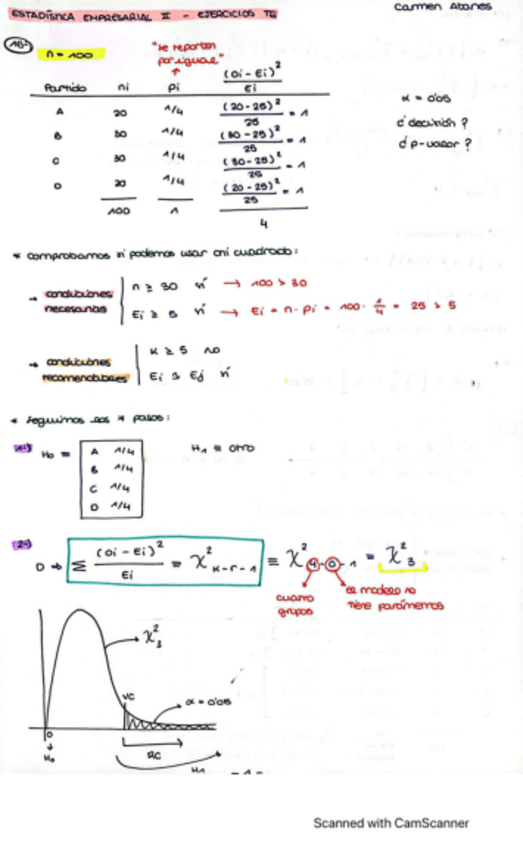 Carmen Atanes
ESTADÍSTICA EMPRESARIAL II - EJERCICIOS T6
1º n = 100
"se reparten por igual"
Partido ni pi (Oi - Ei)² / Ei
A 20 1/4 (20-25)² / 25 = 1
B 30 1/4 (30-25)² / 25 = 1
C 30 1/4 (30-25)² / 25 = 1
D 20 1/4 (20-25)² / 25 = 1
100 1 4
α = 0'05
d' decisión?
d' p-valor?
* comprobamos si podemos usar chi cuadrado:
→ condiciones necesarias
n ≥ 30 sí → 100 > 30
Ei ≥ 5 sí → Ei = n · pi = 100 · 1/4 = 25 > 5
→ condiciones recomendables
K ≥ 5 no
Ei ≅ Ej sí
* seguimos los pasos:
1º) H₀ ≡ A 1/4
B 1/4
C 1/4
D 1/4
H₁ ≡ otro
2º) D ⇒ Σ (Oi - Ei)² / Ei ≡ χ² K-r-1 ≡ χ² 4-0-1 = χ² 3
cuatro grupos
el modelo no tiene parámetros
χ² 3
VC
α = 0'05
0
H₀
RC
H₁
-1-
Scanned with CamScanner